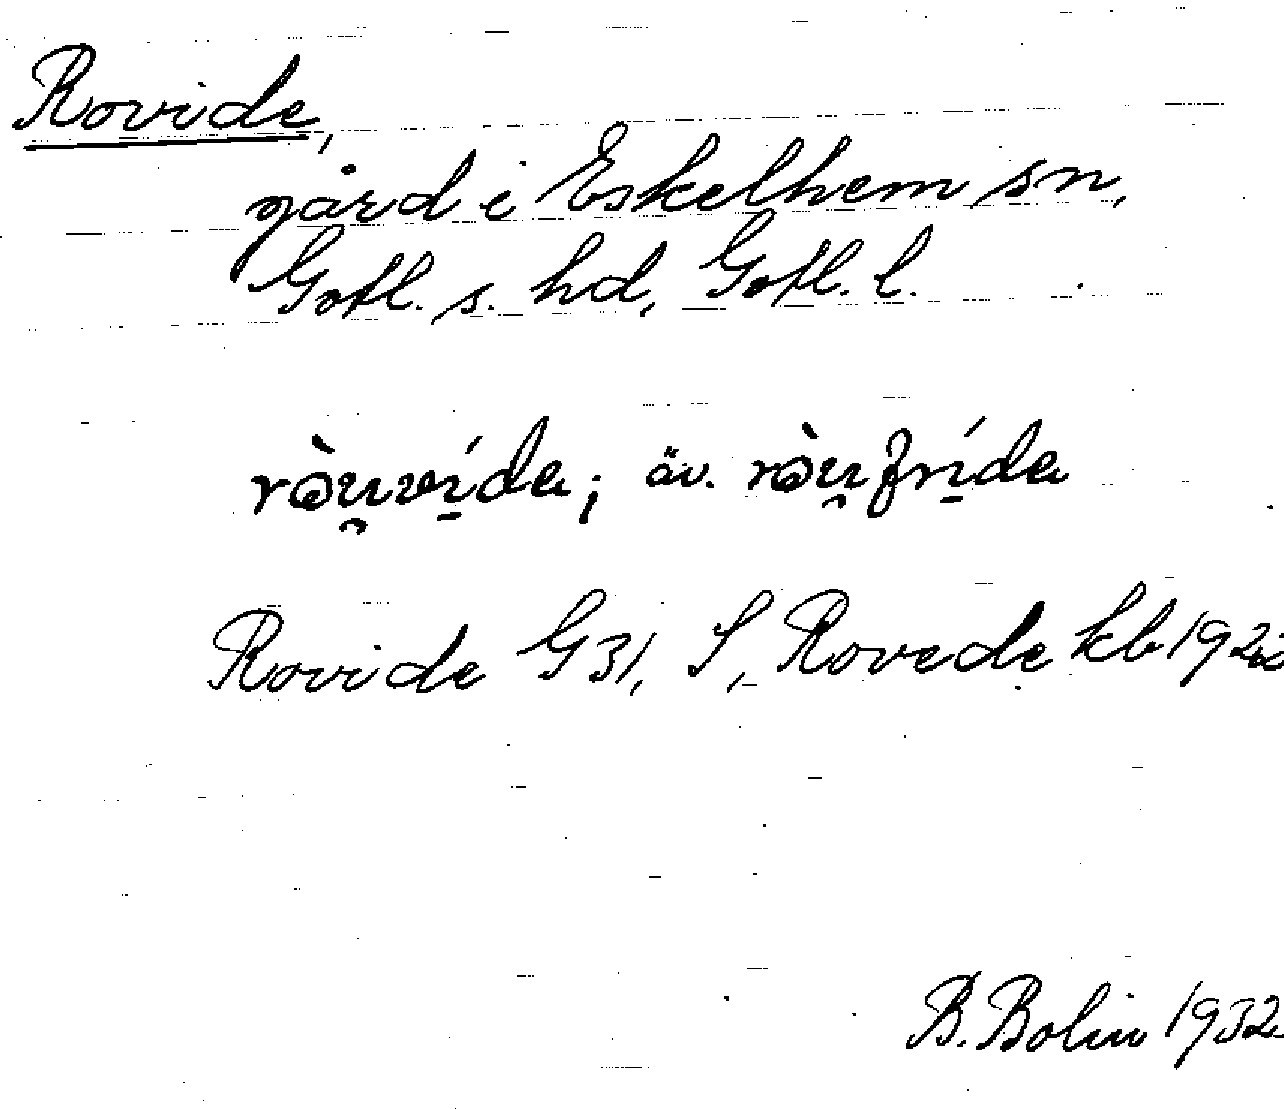 Rovide,
gård i Eskelhem sn,
Gotl. s. hd, Gotl. l.
ròu̯ví̱da; äv. ròu̯frí̱da
Rovide G31, S, Rovede kb 1922
B. Bolin 1932